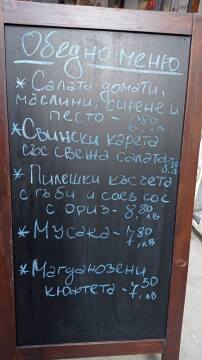 Обедно меню
* Салата домати,
маслини, сирене и
песто - 6,80 лв
* Свински карета
със свежа салата 8,50 лв
* Пилешки късчета
с гъби и соев сос
с ориз - 8,80 лв
* Мусака - 7,80 лв
* Магданозени
кюфтета - 7,50 лв